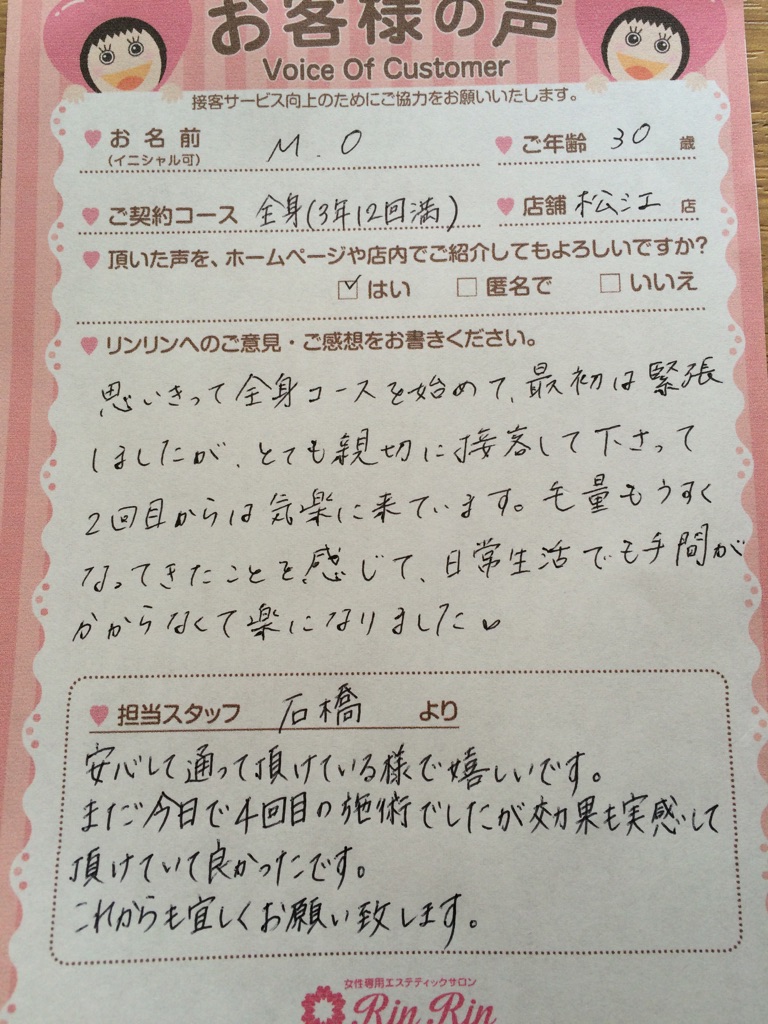 お客様の声
Voice Of Customer
接客サービス向上のためにご協力をお願いいたします。
お名前 (イニシャル可) M.O ご年齢 30 歳
ご契約コース 全身(3年12回満) 店舗 松江 店
頂いた声を、ホームページや店内でご紹介してもよろしいですか?
☑はい □匿名で □いいえ
リンリンへのご意見・ご感想をお書きください。
思いきって全身コースを始めて、最初は緊張
しましたが、とても親切に接客して下さって
2回目からは気楽に来ています。毛量もうすく
なってきたことを感じて、日常生活でも手間が
かからなくて楽になりました♥
担当スタッフ 石橋 より
安心して通って頂けている様で嬉しいです。
まだ今日で4回目の施術でしたが効果も実感して
頂けていて良かったです。
これからも宜しくお願い致します。
女性専用エステティックサロン
Rin Rin